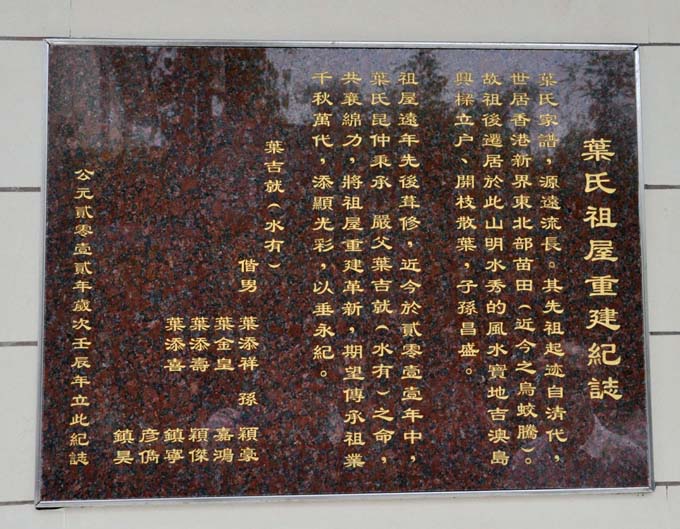 葉氏祖屋重建紀誌
葉氏家譜，源遠流長。其先祖起迹自清代，
世居香港新界東北部苗田（近今之烏蛟騰）。
故祖後遷居於此山明水秀的風水寶地吉澳島
興樑立户、開枝散葉，子孫昌盛。
祖屋遠年先後葺修，近今於貳零壹壹年中，
葉氏昆仲秉承 嚴父葉吉就（水有）之命，
共襄綿力，將祖屋重建革新，期望傳承祖業
千秋萬代，添顯光彩，以垂永紀。
葉吉就（水有）
偕男 葉添祥 孫 穎豪
葉金皇 嘉鴻
葉添壽 穎傑
葉添喜 鎮寧
彦儁
鎮昊
公元貳零壹貳年歲次壬辰年立此紀誌